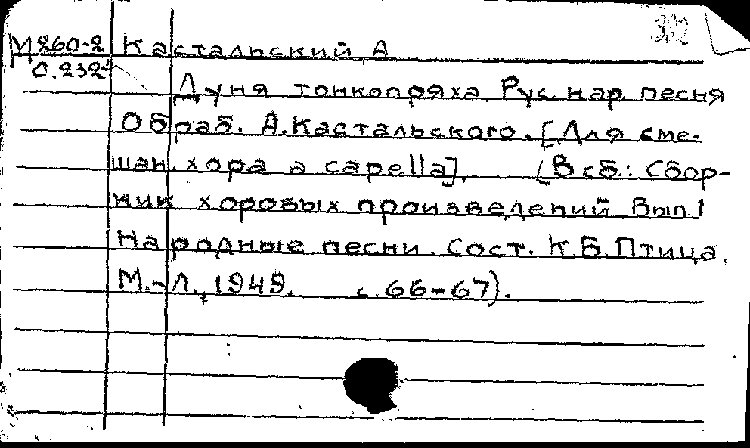 М260-2 Кастальский А
0.232
Дуня тонкопряха. Рус. нар. песня
Обраб. А.Кастальского. [Для сме-
шан. хора a capella]. (В сб.: Сбор-
ник хоровых произведений Вып 1
Народные песни. Сост. К.Б.Птица.
М.-Л., 1949. с. 66-67).